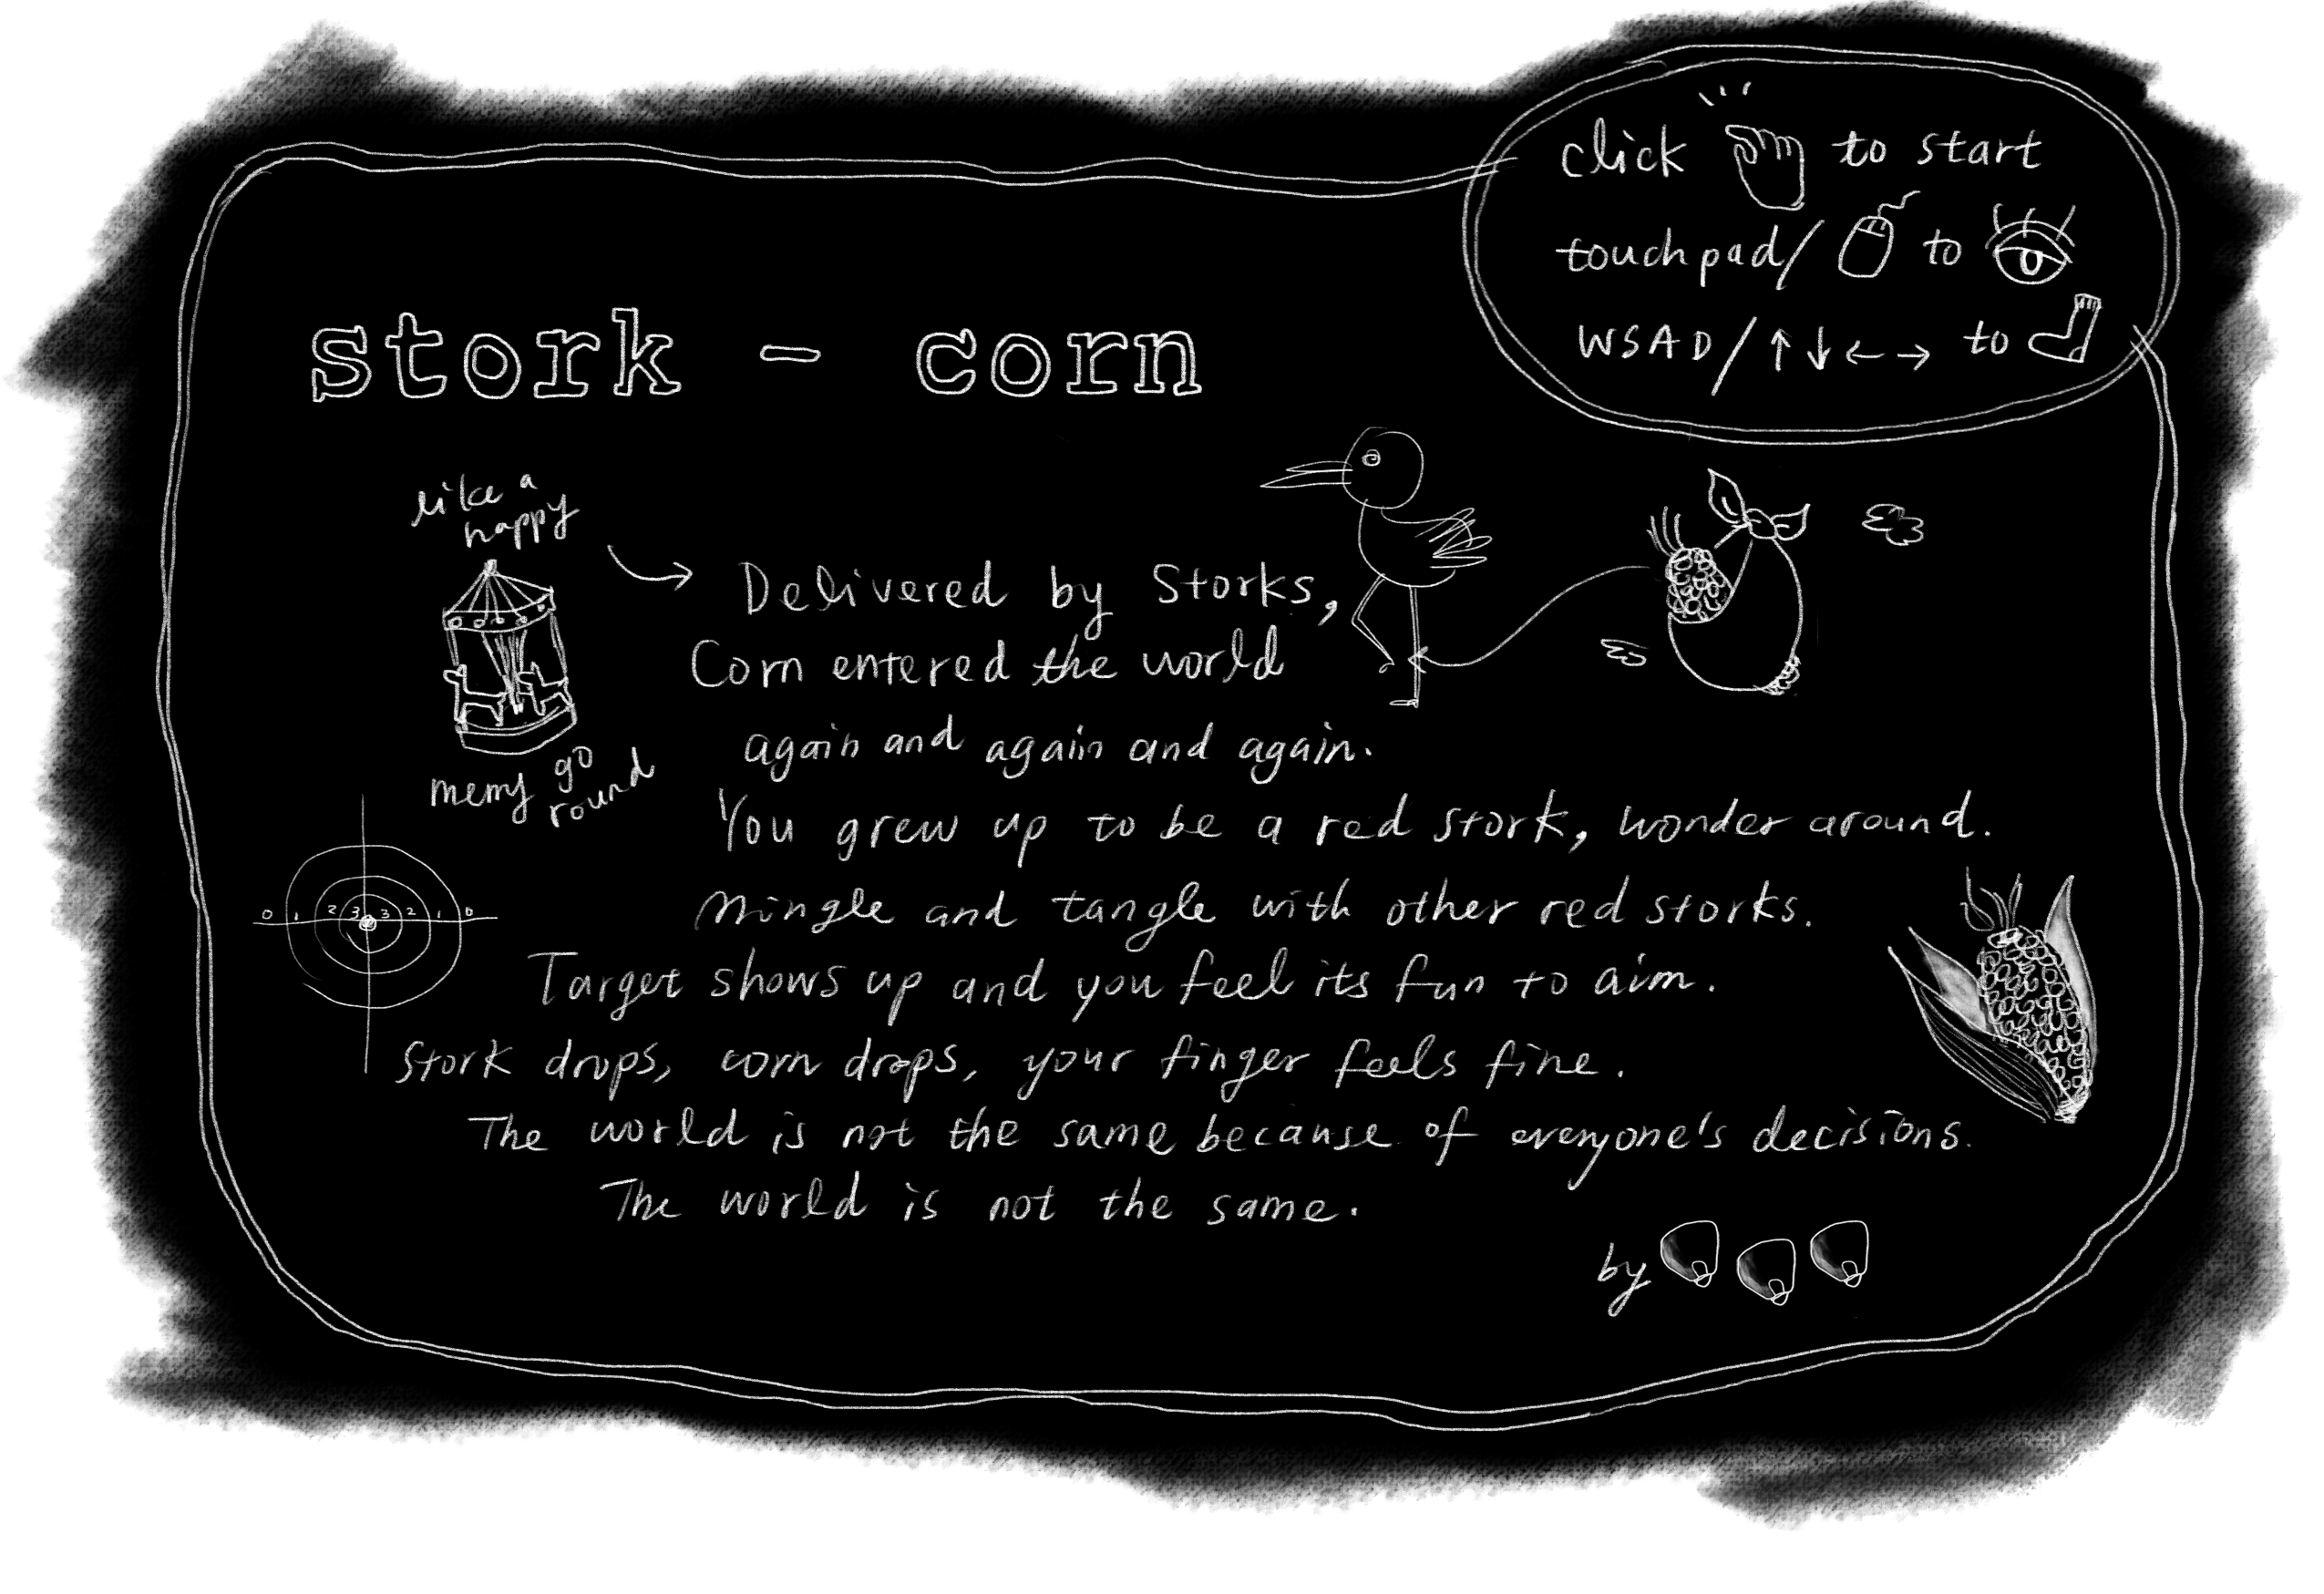 click to start
touchpad/ to
WSAD/↑↓←→ to
stork - corn
like a
happy
merry go
round
Delivered by Storks,
Corn entered the world
again and again and again.
You grew up to be a red stork, wonder around.
Mingle and tangle with other red storks.
0 1 2 3 3 2 1 0
Target shows up and you feel its fun to aim.
Stork drops, corn drops, your finger feels fine.
The world is not the same because of everyone's decisions.
The world is not the same.
by